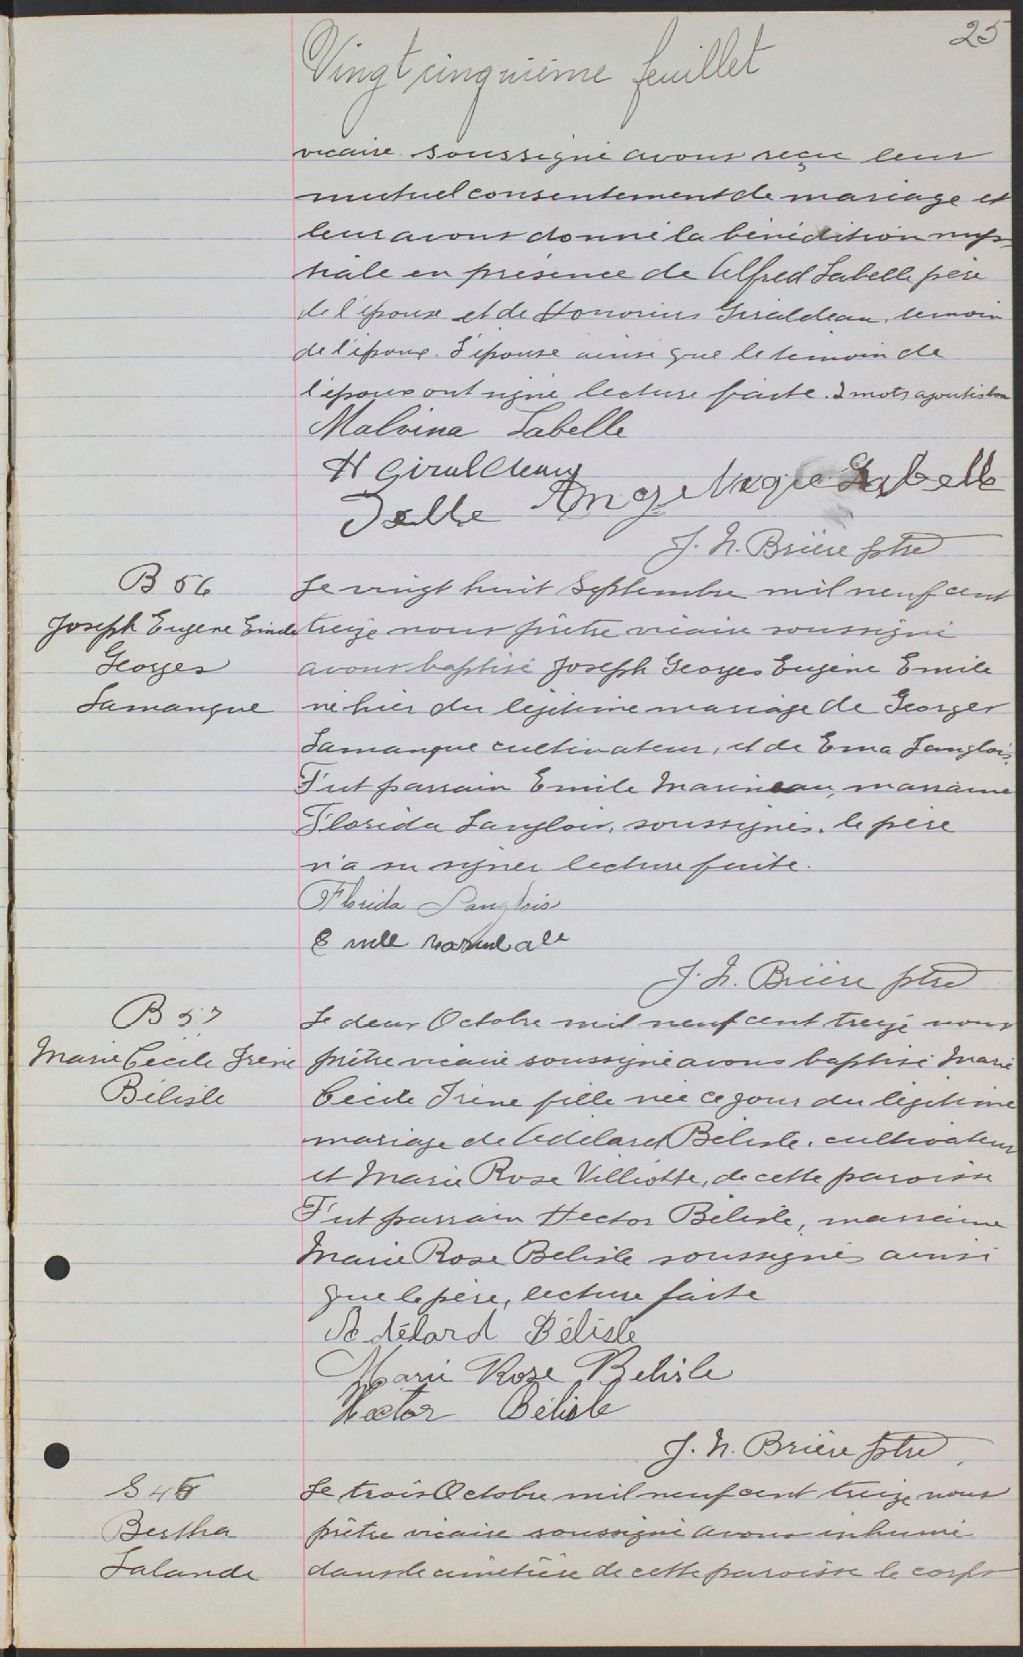 25
Vingt cinquième feuillet
vicaire soussigné avons reçu leur
mutuel consentement de mariage et
leur avons donné la bénédiction nup-
tiale en présence de Alfred Labelle père
de l'épouse et de Honorius Giraldeau, temoin
de l'époux. L'épouse ainsi que le témoin de
l'époux ont signé lecture faite. 2 mots ajoutés bon
Malvina Labelle
H Giraldeau
Angelique Labelle
J. N. Brière ptre
B 56
Joseph Eugene Emile
Georges
Lamangue
Le vingt huit Septembre mil neuf cent
treize nous prêtre vicaire soussigné
avons baptisé Joseph Georges Eugène Emile
né hier du légitime mariage de Georges
Lamangue cultivateur, et de Ema Langlois.
Fut parrain Emile Marineau, marraine
Florida Langlois, soussignés. le père
n'a su signer lecture faite.
Florida Langlois
J. N. Brière ptre
B 57
Marie Cécile Irène
Bélisle
Le deux Octobre mil neuf cent treize nous
prêtre vicaire soussigné avons baptisé Marie
Cécile Irène fille née ce jour du légitime
mariage de Adélard Bélisle, cultivateur
et Marie Rose Villiotte, de cette paroisse
Fut parrain Hector Bélisle, marraine
Marie Rose Bélisle soussignés ainsi
que le père, lecture faite
Adélard Bélisle
Marie Rose Belisle
Hector Bélisle
J. N. Brière ptre
S 45
Bertha
Lalande
Le trois Octobre mil neuf cent treize nous
prêtre vicaire soussigné avons inhumé
dans le cimetière de cette paroisse le corps